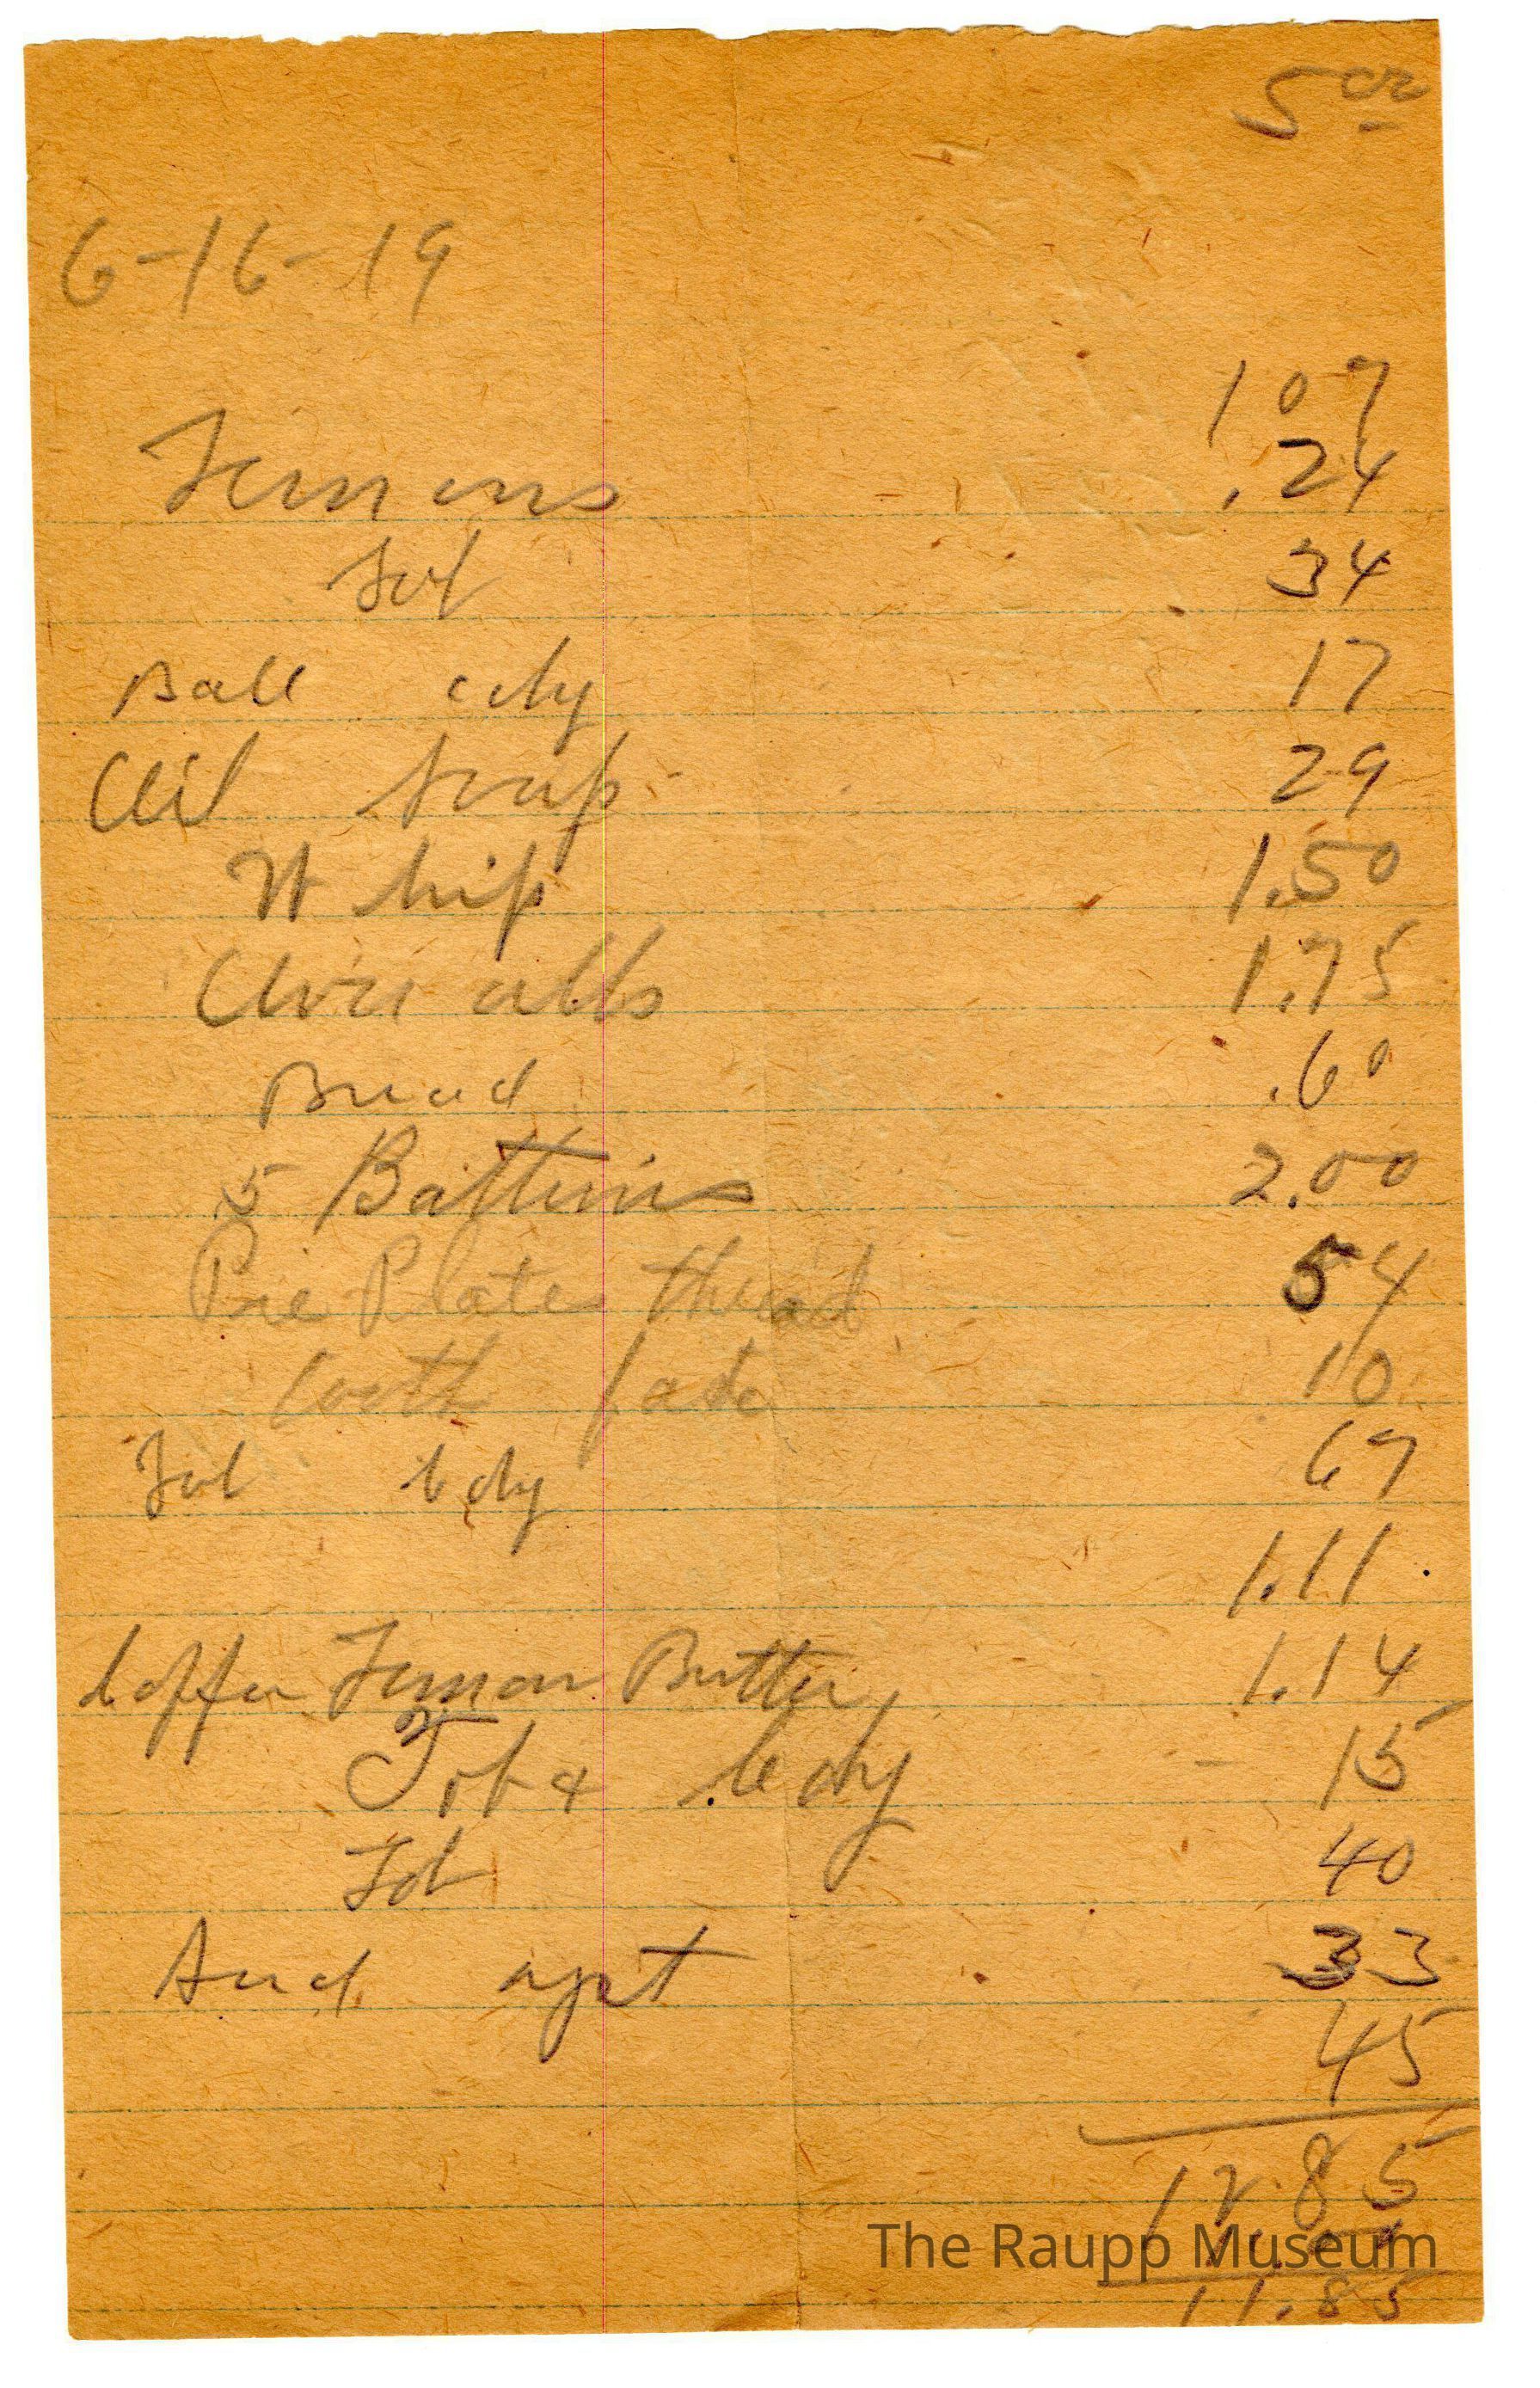 5 00
6-16-19
107
Lemons .24
34
Ball cdy 17
Oil Soap 29
Whip 1.50
Over alls 1.75
Bread .60
5 Batteries 2.00
Pie Plates thread 54
tooth paste 10
cdy 67
1.11
Coffee Lemon Butter 1.14
Toba cdy 15
40
33
45
12.85
11.85
The Raupp Museum